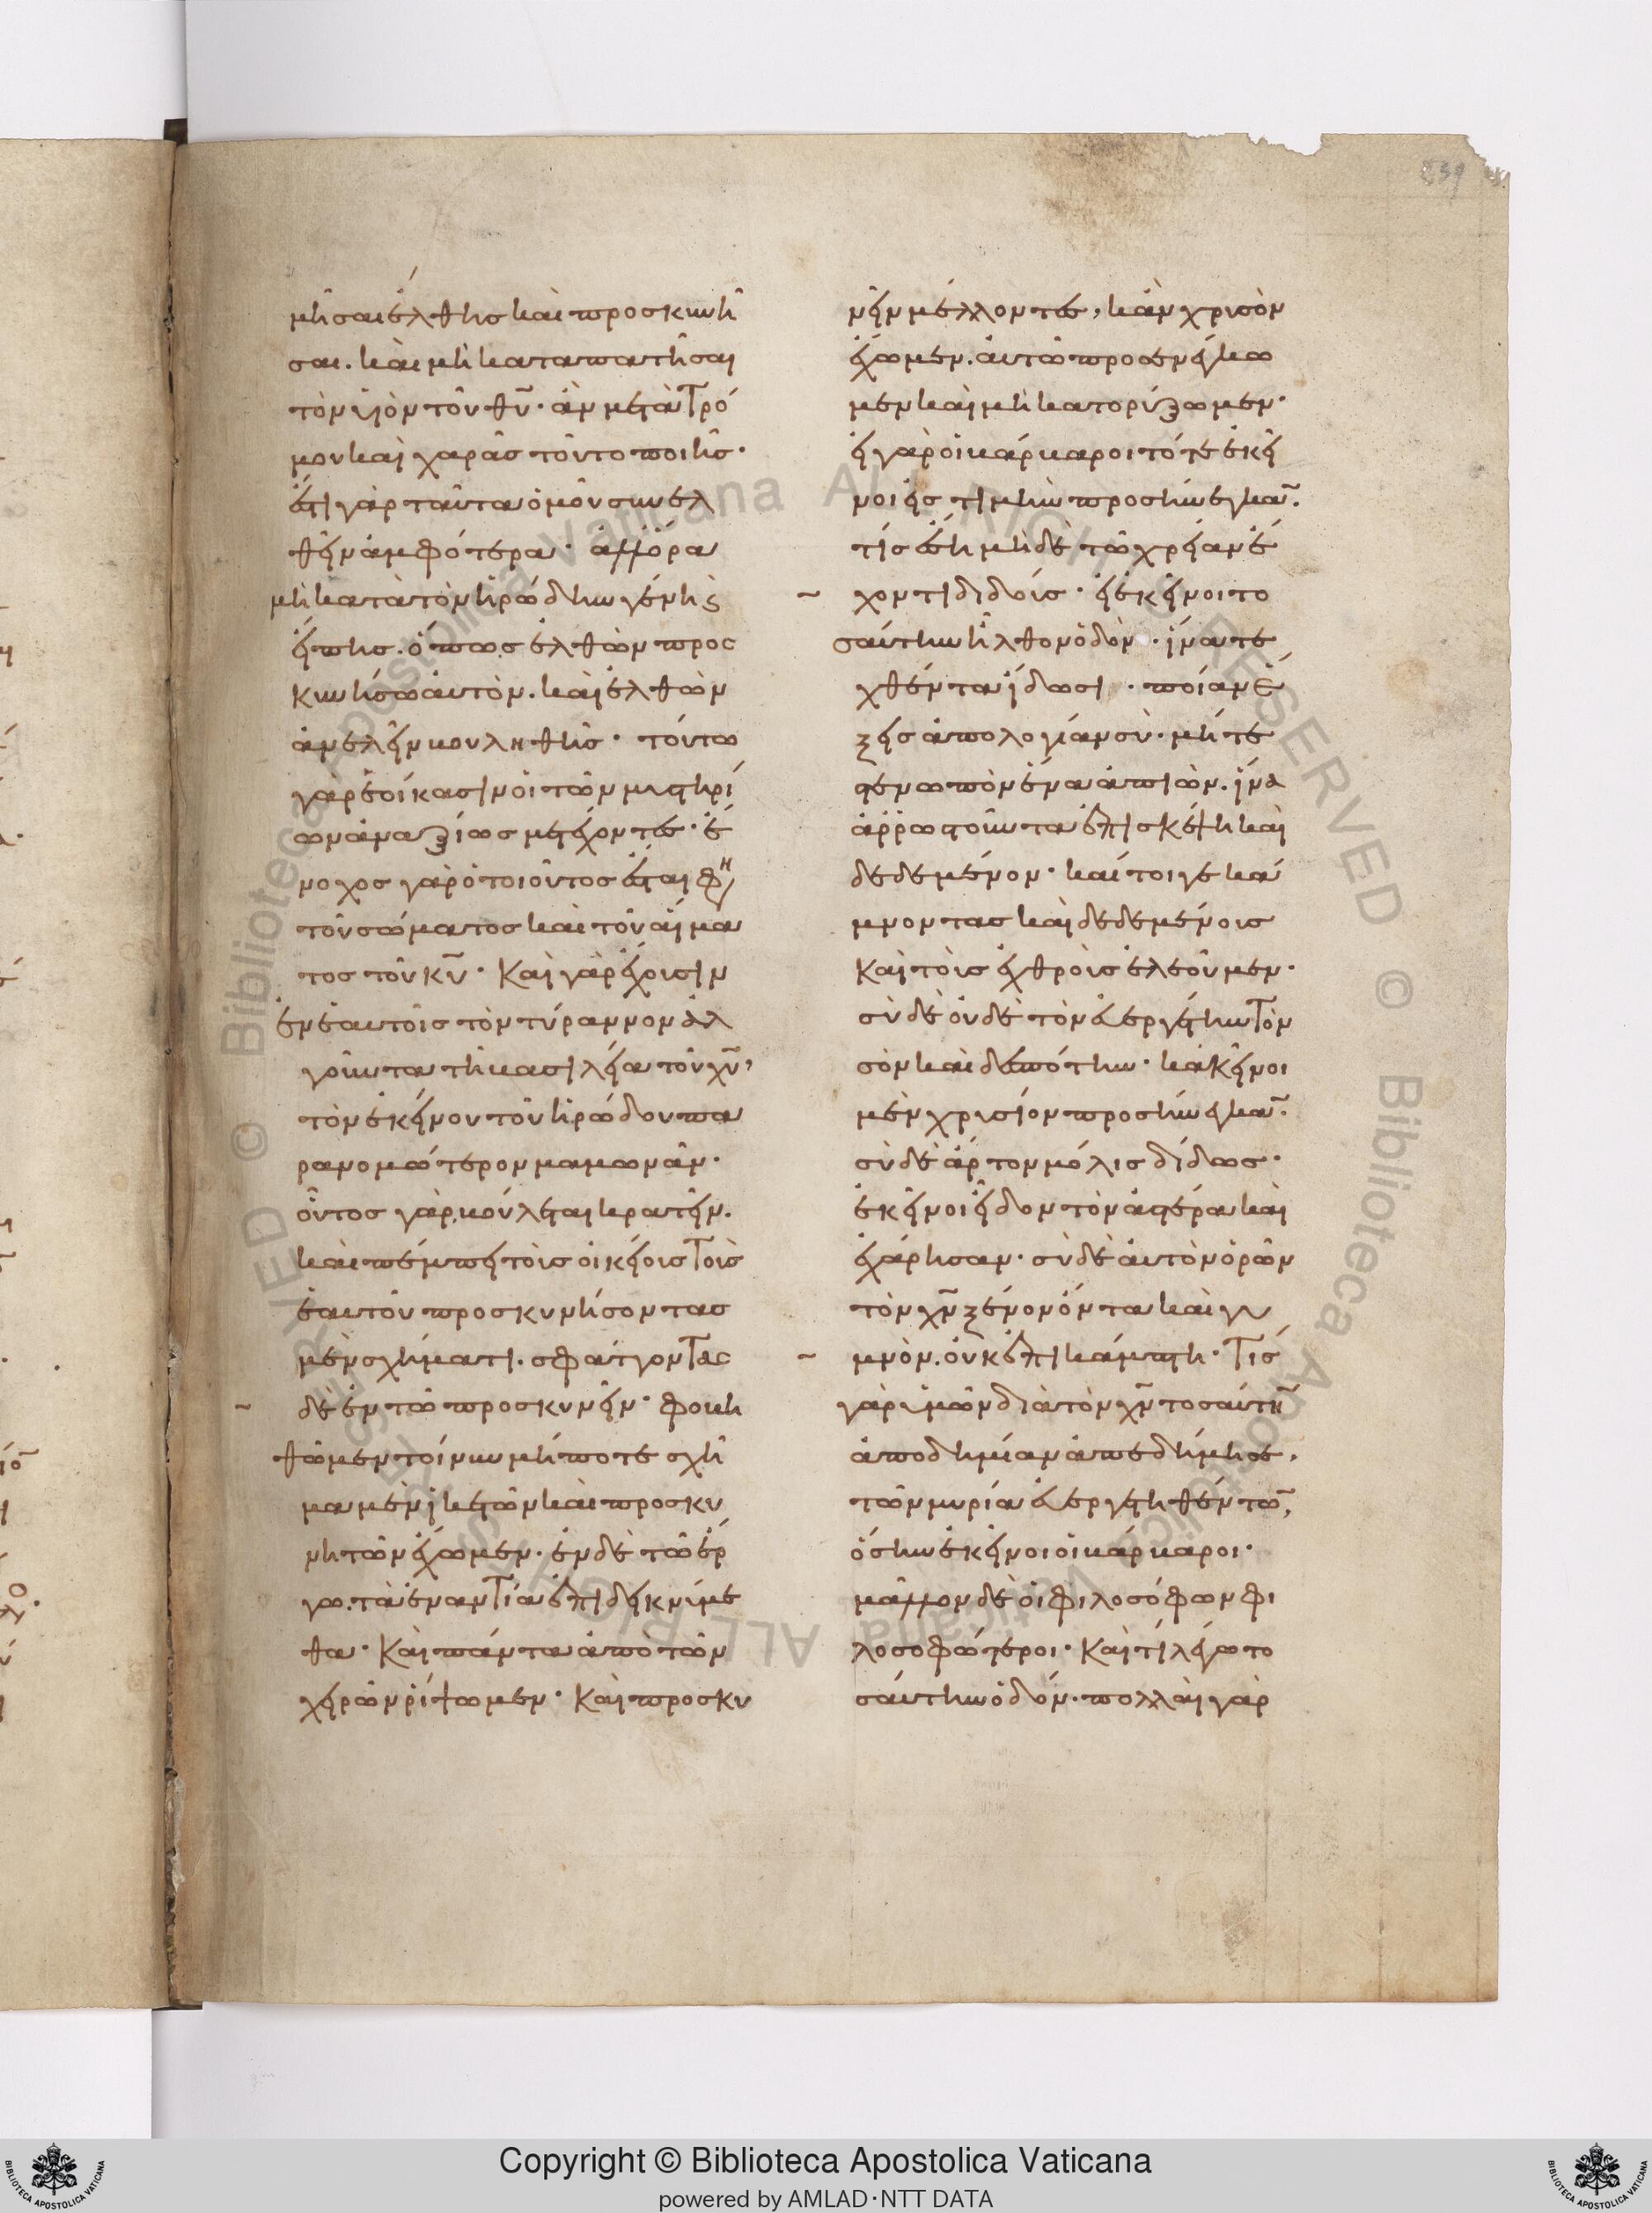 μῆσαι ἔλθης καὶ προσκυνῆ
σαι. καὶ μὴ καταπατῆσαι
τὸν υἱὸν τοῦ θ̅υ̅· ἂν μετὰ τρό
μου καὶ χαρᾶς τοῦτο ποιῆς·
ἔστι γὰρ ταῦτα ὁμοῦ συνελ
θεῖν ἀμφότερα· ἀλλ' ὅρα
μὴ κατὰ τὸν ἡρώδην γένης
εἴπης. ὅπως ἐλθὼν προς
κυνήσω αὐτὸν. καὶ ἐλθὼν
ἀνελεῖν βουληθῆς· τούτω
γὰρ ἐοίκασιν οἱ τῶν μυστηρί
ων ἀναξίως μετέχοντες· ἔ
νοχος γὰρ ὁ τοιοῦτος ἔσται φη
τοῦ σώματος καὶ τοῦ αἵμα
τος τοῦ κ̅υ̅· Καὶ γὰρ ἔχουσιν
ἐν ἑαυτοῖς τὸν τύραννον ἀλ
γοῦντα τῆ βασιλεία τοῦ χ̅υ̅,
τὸν ἐκείνου τοῦ ἡρώδου πα
ρανομώτερον μαμωνᾶν·
οὗτος γὰρ βούλεται κρατεῖν.
καὶ πέμπει τοὺς οἰκείους τοὺς
ἑαυτοῦ προσκυνήσοντας
μὲν σχήματι. σφάττοντας
δὲ ἐν τῶ προσκυνεῖν· φοβη
θῶμεν τοίνυν μήποτε σχῆ
μα μὲν ἱκετῶν καὶ προσκυ
νητῶν ἔχωμεν. ἐν δὲ τῶ ἔρ
γω. τὰ ἐναντία ἐπιδεικνύμε
θα· Καὶ πάντα ἀπὸ τῶν
χειρῶν ρίψωμεν· Καὶ προσκυ
νεῖν μέλλοντες, κἂν χρυσὸν
ἔχωμεν. αὐτῶ προσενέγκω
μεν καὶ μὴ κατορύξωμεν·
εἰ γὰρ οἱ βάρβαροι τότε ἐκεῖ
νοι εἰς τιμὴν προσήνεγκα̅.
τίς ἔση μὴ δὲ τῶ χρείαν ἔ
χοντι διδούς· εἰ ἐκεῖνοι το
σαύτην ἦλθον ὁδὸν. ἵνα τε
χθέντα ἴδωσι. ποίαν ἕ
ξεις ἀπολογίαν σὺ. μήτε
στενωπὸν ἕνα ἀπιὼν. ἵνα
ἀρρωστοῦντα ἐπισκέψη καὶ
δεδεμένον· καίτοιγε κά
μνοντας καὶ δεδεμένους
Καὶ τοὺς ἐχθροὺς ἐλεοῦμεν·
σὺ δὲ οὐδὲ τὸν εὐεργέτην τὸν
σὸν καὶ δεσπότην· κἀκεῖνοι
μὲν χρυσίον προσήνεγκα̅.
σὺ δὲ ἄρτον μόλις δίδως·
ἐκεῖνοι εἶδον τὸν ἀστέρα καὶ
ἐχάρησαν· σὺ δὲ αὐτὸν ὁρῶν
τὸν χ̅ν̅ ξένον ὄντα καὶ γυ
μνὸν. οὐκ ἐπικάμπτη· Τίς
γὰρ ὑμῶν διὰ τὸν χ̅ν̅ τοσαύτη̅
ἀποδημίαν ἀπεδήμησε,
τῶν μυρία εὐεργετηθέντω̅,
ὅσην ἐκεῖνοι οἱ βάρβαροι·
μᾶλλον δὲ οἱ φιλοσόφων φι
λοσοφώτεροι· Καὶ τί λέγω το
σαύτην ὁδόν. πολλαὶ γὰρ